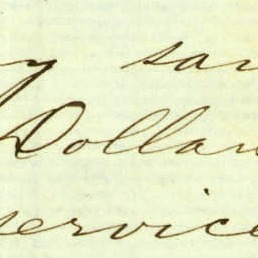 y sam
Dollar
service